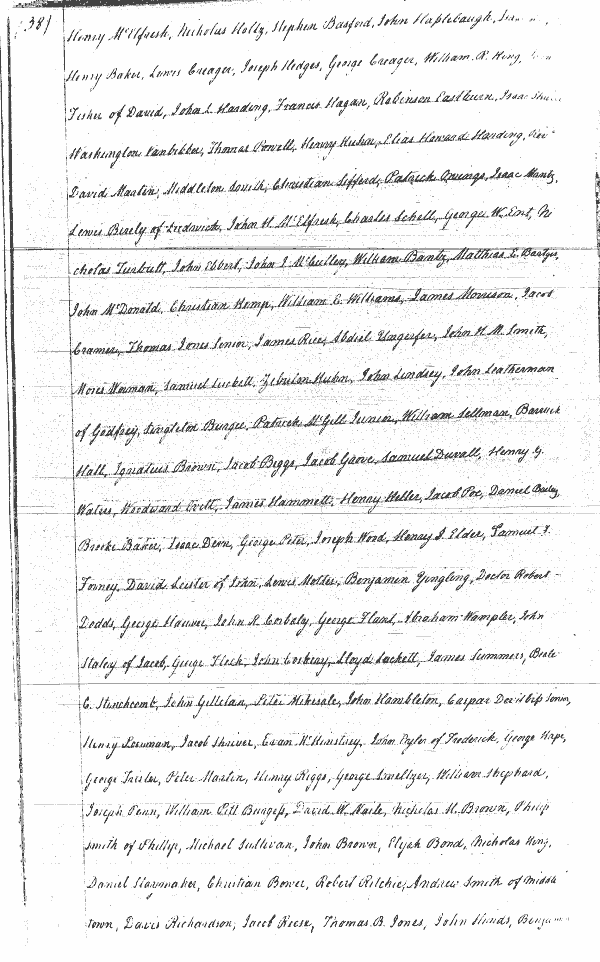 38)
Henry McElfresh, Nicholas Holtz, Stephen Basford, John Haplebaugh,
Henry Baker, Lewis Creager, Joseph Hedges, George Creager, William R. King,
Fisher of David, John L. Harding, Francis Hagan, Robinson Eastburn, Isaac
Washington Vanbibber, Thomas Powell, Henry Kuhn, Elias Howard Harding,
David Martin, Middleton Smith, Christian Sifford, Patrick Owings, Isaac Mantz,
Lewis Birely of Ludwick, John H. McElfresh, Charles Schell, George W. Ent, Ni
cholas Turbutt, John Ebbert, John I McCulley, William Bantz, Matthias E. Bartgis,
John McDonald, Christian Kemp, William E. Williams, James Morrison, Jacob
Cramer, Thomas Jones Senior, James Rice, Abdiel Unseferr, John H. M. Smith,
Moses Worman, Samuel Luckett, Zebulon Kuhn, John Lindsey, John Leatherman
of Godfrey, Singleton Burgee, Patrick McGill Junior, William Sellman, Barrick
Hall, Ignatius Brown, Jacob Biggs, Jacob Grove, Samuel Duvall, Henry G.
Waters, Woodward Evitt, James Hammett, Henry Heller, Jacob Poe, Daniel Bailey,
Brooke Baker, Isaac Dern, George Peter, Joseph Wood, Henry I. Elder, Samuel F.
Forney, David Leister of John, Lewis Motter, Benjamin Yingling, Doctor Robert
Dodds, George Hauver, John R. Corbaly, George Flant, Abraham Wampler, John
Staley of Jacob, George Flook, John Coskeray, Lloyd Luckett, James Summers, Beale
C. Stinchcomb, John Gillelan, Peter Mikesale, John Hambleton, Caspar Devilbiss Senior,
Henry Leeuman, Jacob Shriver, Evan McKinstrey, John Eyler of Frederick, George Kape,
George Trisler, Peter Martin, Henry Riggs, George Smeltzer, William Shephard,
Joseph Penn, William Pitt Burgess, David W. Naile, Nicholas H. Brown, Philip
Smith of Phillip, Michael Sullivan, John Brown, Elijah Bond, Nicholas King,
Daniel Slaymaker, Christian Bower, Robert Ritchie, Andrew Smith of Middle
town, Davis Richardson, Jacob Reese, Thomas B. Jones, John Hinds,